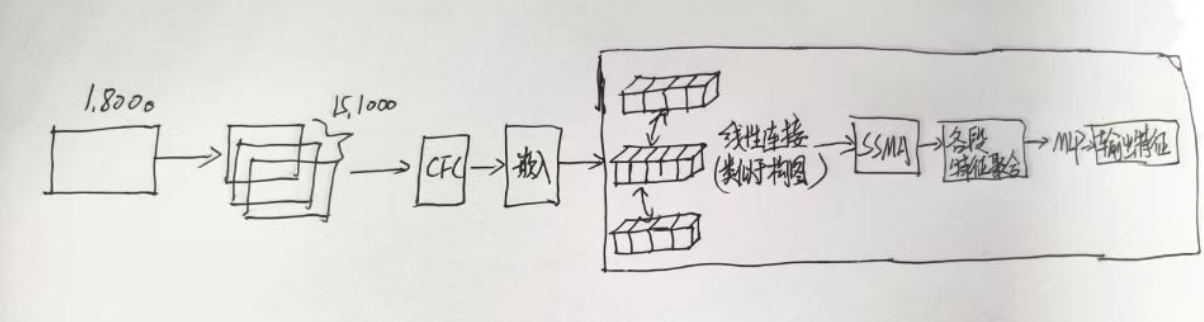 1,8000
15,1000
CFC
嵌入
线性连接
(类似于构图)
SSMA
各段
特征聚合
MLP
输出特征